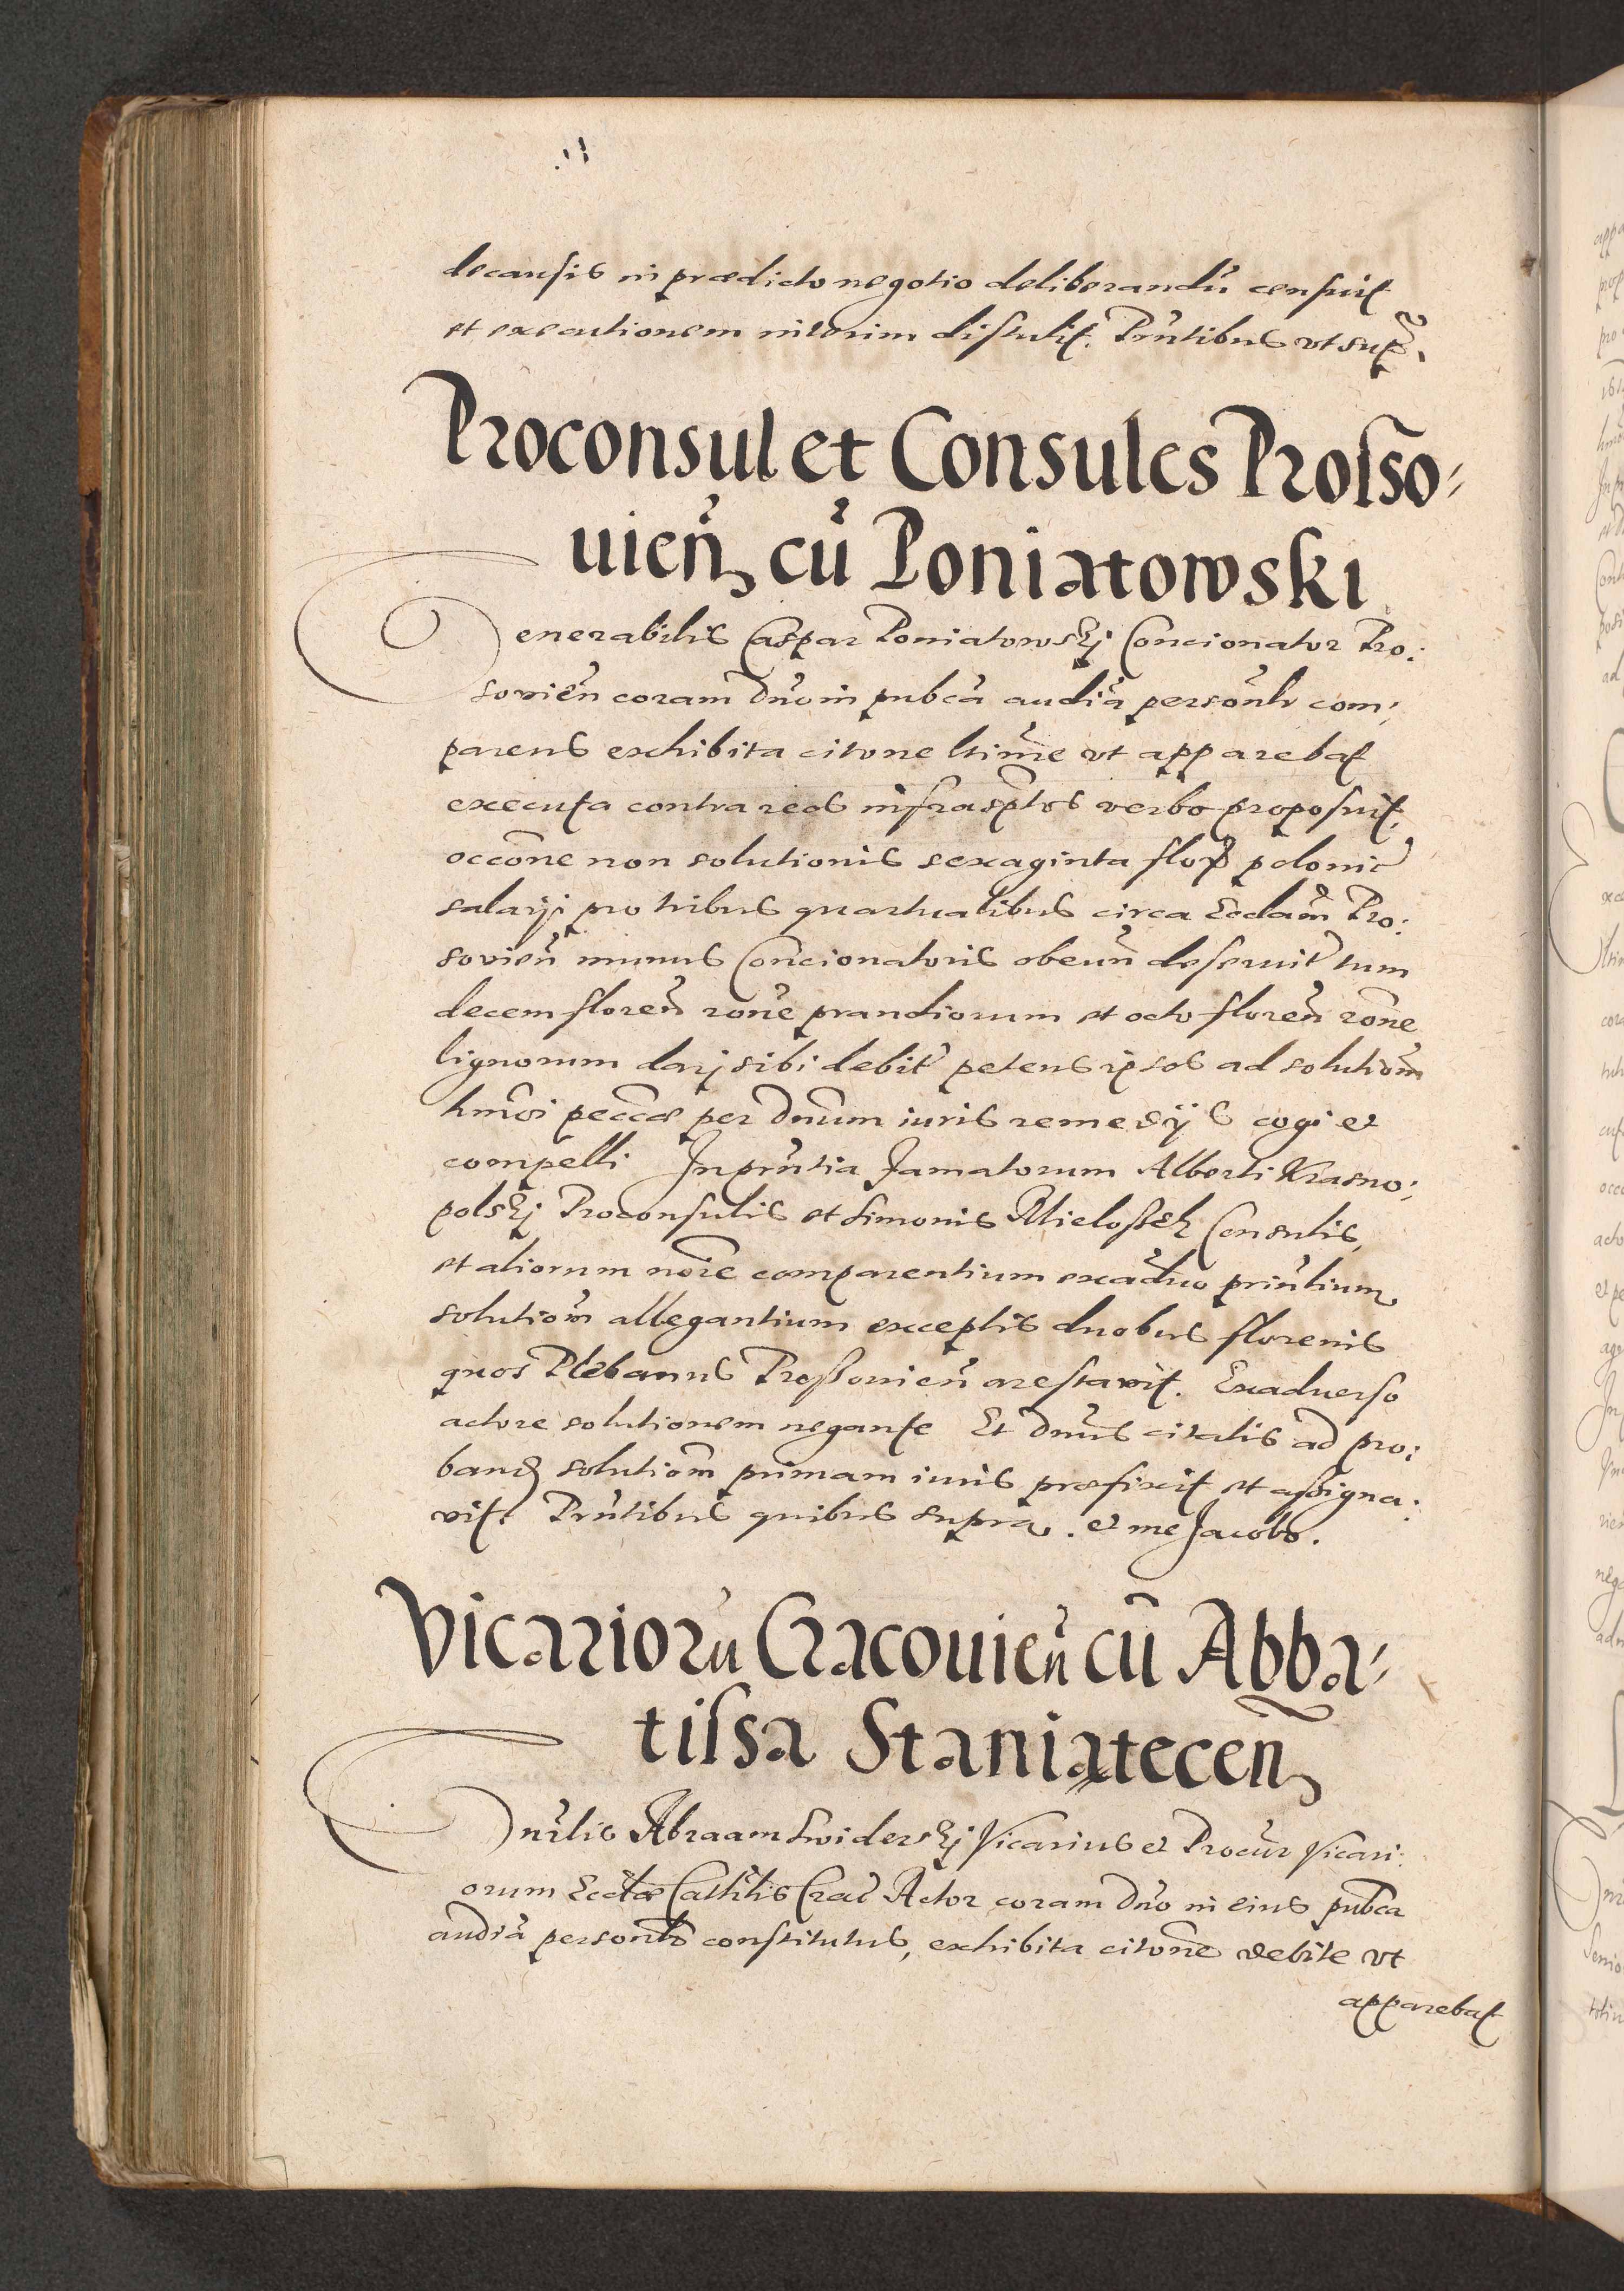 de causis in prædicto negotio deliberandũ censuit
et executionem interim distulit. Prñtibus vt sup̃.
Proconsul et Consules Prosso⸗
uien̄ cū Poniatowski
Venerabilis Caspar Poniatowskj Concionator Pro:
sovien̄ coram Dn̄o in pubca audia personlr com:
parens exhibita citone ltime vt apparebat
executa contra reos infrasptos verbo proposuit,
occone non solutionis sexaginta flor polonic
salarij pro tribus quartualibus circa Ecclam Pro:
sovien̄ munus Concionatoris obeun̄ deseruit tum
decem floren̄ rone prandiorum et octo floren̄ rone
lignorum darj sibi debit petens ipsos ad solutiom
hmoi peccæ per Dnum iuris remedijs cogi et
compelli In prn̄tia famatorum Alberti Krasno:
polskj Proconsulis et Simonis Mieloszek Consulis,
et aliorum noie comparentium exaduo prin̄tium
solutiom allegantium exceptis duobus florenis
quos Plebanus Proßouien̄ arestavit. Exaduerso
actore solutionem negante Et Dnus citatis ad pro:
band solutiom primam iuris præfixit et assigna:
vit. Prn̄tibus quibus supra. et me Jacobo.
Vicariorū Cracouien̄ cū Abba⸗
tissa Staniątecen̄
Dnrlis Abraam Swiderskj Vicarius et Procur Vicari:
orum Ecclæ Cathlis Crac Actor coram Dn̄o in eius pubca
audia personlr constitutus, exhibita citone debite vt
apparebat